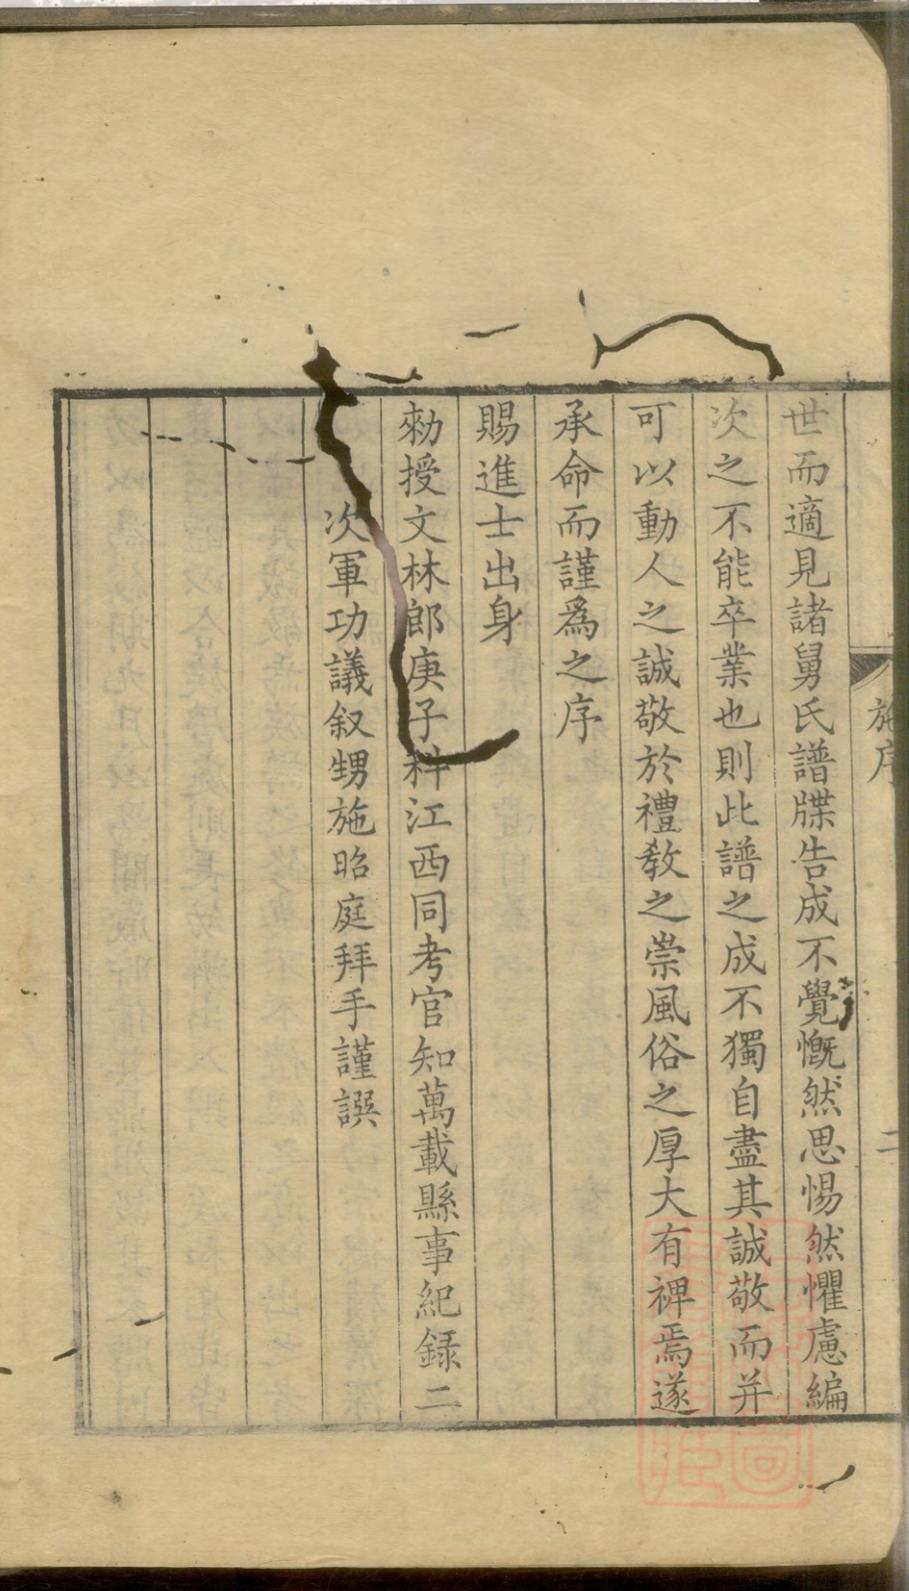 施序
二
世而適見諸舅氏譜牒告成不覺慨然思惕然懼慮編
次之不能卒業也則此譜之成不獨自盡其誠敬而并
可以動人之誠敬於禮教之崇風俗之厚大有裨焉遂
承命而謹爲之序
賜進士出身
勑授文林郎庚子科江西同考官知萬載縣事紀録二
次軍功議叙甥施昭庭拜手謹譔